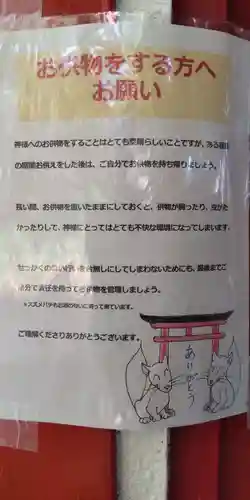 お供物をする方へ
お願い
神様へのお供物をすることはとても素晴らしいことですが、ある程度
の期間お供えをした後は、ご自分でお供物を持ち帰りましょう。
長い間、お供物を置いたままにしておくと、供物が腐ったり、虫がた
かったりして、神様にとってはとても不快な環境になってしまいます。
せっかくの を台無しにしてしまわないためにも、最後までご
自分で責任を持ってお供物を管理しましょう。
ご理解くださりありがとうございます。
ありがとう